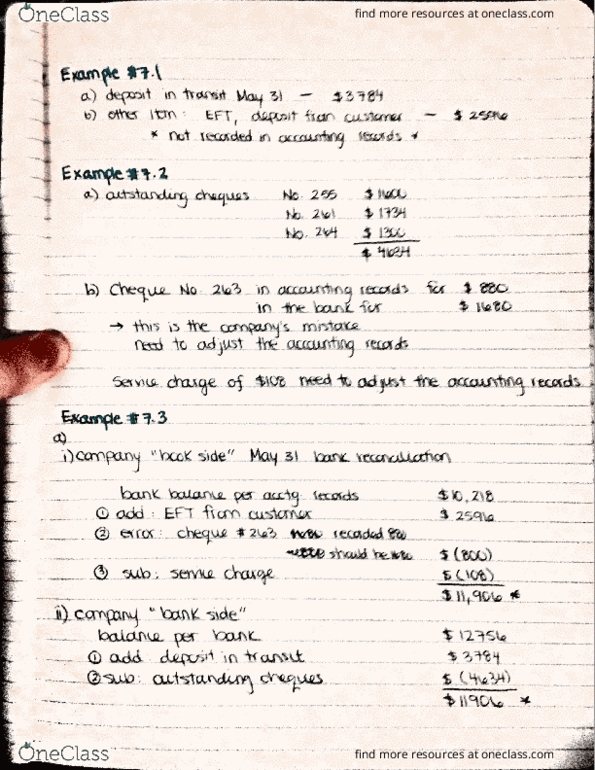 OneClass
find more resources at oneclass.com
Example #7.1
a) deposit in transit May 31 — $3784
b) other item: EFT, deposit from customer — $2596
* not recorded in accounting records *
Example #7.2
a) outstanding cheques No. 255 $1600
No. 261 $1734
No. 264 $1300
$4634
b) Cheque No. 263 in accounting records for $880
in the bank for $1680
→ this is the company's mistake
need to adjust the accounting records
Service charge of $108 need to adjust the accounting records
Example #7.3
a)
i) company "book side" May 31 bank reconciliation
bank balance per acctg records $10,218
① add: EFT from customer $2596
② error: cheque #263 recorded 880
should be $(800)
③ sub: service charge $(108)
$11,906 *
ii) company "bank side"
balance per bank $12756
① add: deposit in transit $3784
② sub: outstanding cheques $(4634)
$11906 *
OneClass
find more resources at oneclass.com